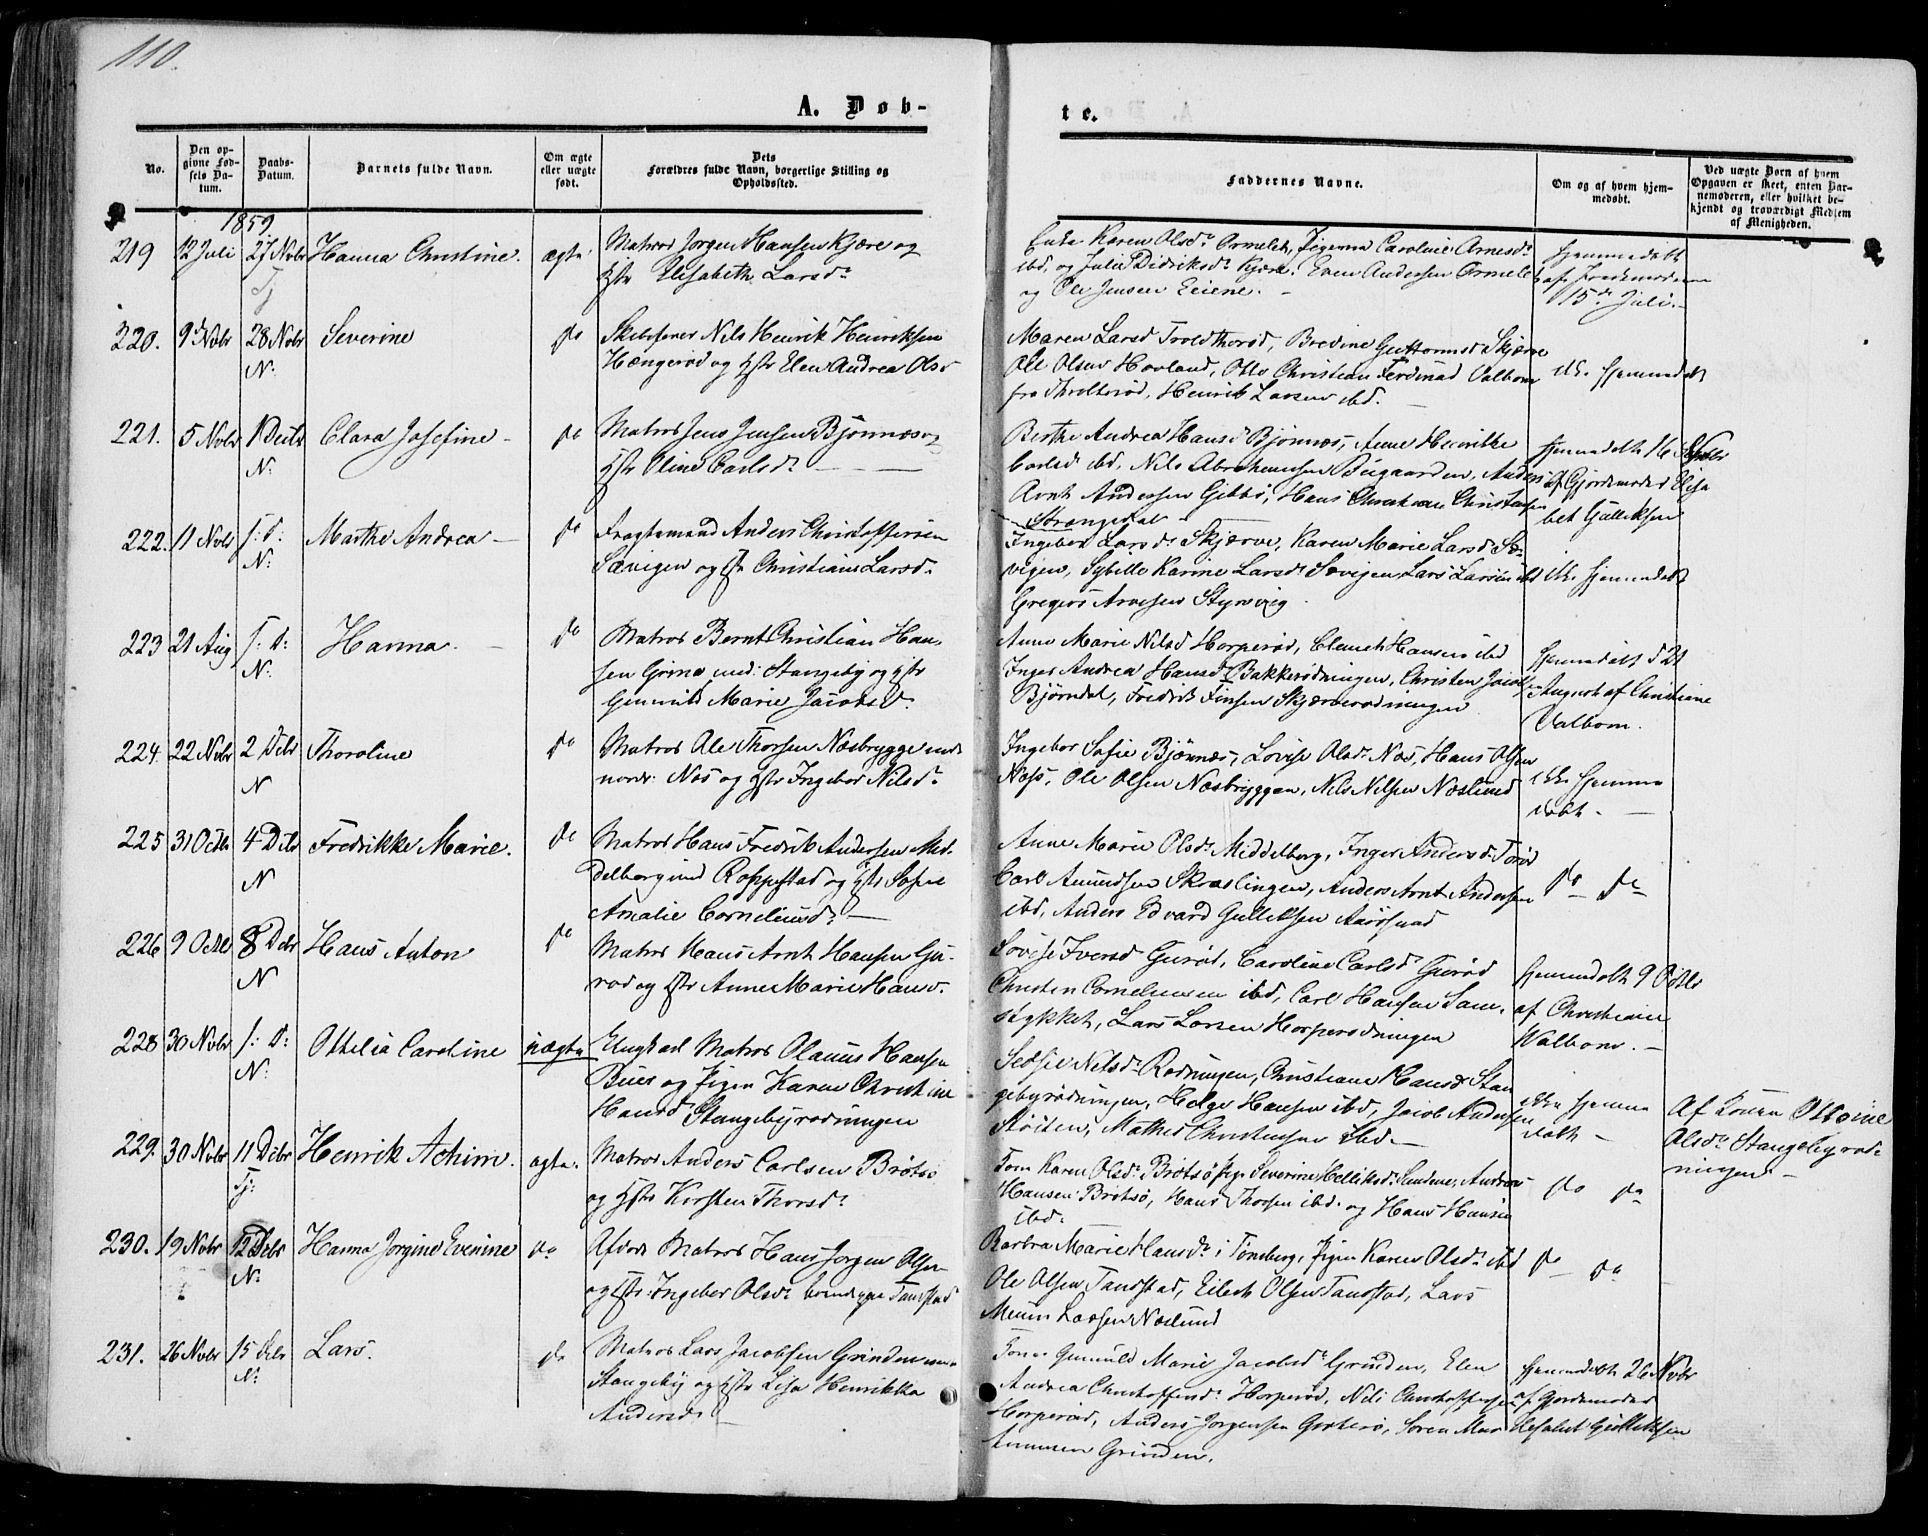 110.
A. Døb-
te.
No.
Den op-
givne Fød-
sels Da-
tum.
Daabs-
Datum.
Barnets fulde Navn.
Om ægte
eller uægte
født.
Dets
Forældres fulde Navn, borgerlige Stilling og
Opholdssted.
Faddernes Navne.
Om og af hvem hjem-
medøbt.
Ved uægte Børn af hvem
Opgaven er skeet, enten Bar-
nemoderen, eller hvilket be-
kjendt og troværdigt Medlem
af Menigheden.
1859
219 12 Juli 27 Novbr Hanna Christine. ægte
Matros Jørgen Hansen Kjære og
Hstr Elisabeth Larsdr
Enke Karen Olsdr Ormelet, Pigerne Caroline Arnesdr
ibd, og Julie Didriksdr Kjære. Even Andersen Ormelet
og Ole Jensen Eiene. –
hjemmedøbt
af Jordemoderen
15de Juli. –
220. 9 Novbr 28 Novbr N. Severine do
Skibsfører Nils Henrik Henriksen
Hængerød og Hstr Elen Andrea Olsd
Maren Larsd Troldthorød, Bredine Guttormsd Skjærve
Ole Olsen Hovland, Otto Christian Ferdinad Valbom
fra Throltorød, Henrik Larsen ibd. –
ikke hjemmedøbt
221. 5 Novbr 1 Decbr N. Clara Josefine – do
Matros Jens Jensen Bjønnes og
Hstr Oline Carlsdr
Berthe Andrea Hansd Bjønnes, Anne Henrikke
Carlsdr ibd, Nils Abrahamsen Buegaarden, Anders
Arnt Andersen Gibbø, Hans Christian Christensen
Strangedal
hjemmedøbt 16 Novbr
af Gjordemoder Elisa
bet Gulliksen
222. 11 Novbr s: D: N: Marthe Andrea – do
Fragtemand Anders Christoffersen
Sævigen og Hstr Christiane Larsd.
Ingebor Larsdr Skjærve, Karen Marie Larsd Sæ-
vigen, Sybille Karine Larsdr Sævigen, Lars Larsen ibd
Gregers Arnesen Styrsvig
ikke hjemmedøbt
223 21 Aug s: D: N: Hanna. – do
Matros Bernt Christian Han-
sen Grima ned: Stangeby og Hstr
Gunnild Marie Jacobsd.
Anne Marie Nilsd Horperød, Clemet Hansen ibd
Inger Andrea Hansd Bakkerødningen, Christen Jacobsen
Bjørndal, Fredrik Finsen Skjærverødningen
hjemmedøbt d 21
August af Christiane
Valbom.
224. 22 Novbr 2 Debr N Thoroline do
Matros Ole Thorsen Næsbrygge und
nordr: Næs og Hstr Ingebor Nilsdr
Ingebor Sofie Bjønnes, Lovise Olsd: Næs, Hans Olsen
Næss, Ole Olsen Næsbryggen, Nils Nilsen Næslund
ikke hjemme
døbt. –
225 31 Octbr 4 Debr N Fredrikke Marie. do
Matros Hans Fredrik Andersen Mid-
delborg und Roppestad og Hstr Sofie
Amalie Corneliusdr –
Anne Marie Olsdr Middelborg, Inger Andersd. Torød
Carl Amundsen Skræslingen, Anders Arnt Andersen
ibd, Anders Edvard Gulliksen Aarøsund
do – do
226 9 Octbr 8 Debr N Hans Anton do
Matros Hans Arnt Hansen Gu-
rød og Hstr Anne Marie Hansd.
Lovise Iversd Gurød, Caroline Carlsdr Gurød
Christen Corneliussen ibd, Carl Hansen Sam-
stykket, Lars Larsen Horperødningen
hjemmedøbt 9 Octbr
af Christiane
Valbom. –
228 30 Novbr s: D: N: Othelia Caroline uægte
Ungkarl Matros Olaus Hansen
Buer og Pigen Karen Christine
Hansd Stangebyrødningen
Sedsie Nilsdr Rødningen, Christiane Hansdr Stan
gebyrødningen, Helge Hansen ibd, Jacob Andersen
Støiten, Mathis Christensen ibd. –
ikke hjemme
døbt –
Af Konen Ottoine
Olsdr Stangebyrød-
ningen –
229. 30 Novbr 11 Debr Tj: Henrik Achim. ægte.
Matros Anders Carlsen Brøtsø
og Hstr Kirsten Thorsdr
Kone Karen Olsdr Brøtsø, Pige Severine Hellikdr Sundene, Andreas
Hansen Brøtsø, Hans Thorsen ibd. og Hans Hansen
ibd.
do do
230. 19 Novbr 12 Debr N: Hanna Jorgine Evenine do
Afdøde Matros Hans Jorgen Olsen
og Hstr: Ingebor Olsdr boende paa Tandstad
Barbra Marie Hansdr i Tønsberg, Pigen Karen Olsdr ibd
Ole Olsen Tandstad, Eilert Olsen Tandstad, Lars
Meum Larsen Næslund
do – do
231. 26 Novbr 15 Debr N: Lars. do
Matros Lars Jacobsen Grinden
Stangeby og Hstr Lisa Henrikka
Andersd. –
Kone Gunnild Marie Jacobsdr Grinden, Elen
Andrea Christoffersdr Horperød, Nils Christoffersen
Horperød, Anders Jorgensen Grøterø, Soren
Ammunsen Grinden.
hjemmedøbt 26 Novbr
af Gjordemoder
Elisabet Gulliksen